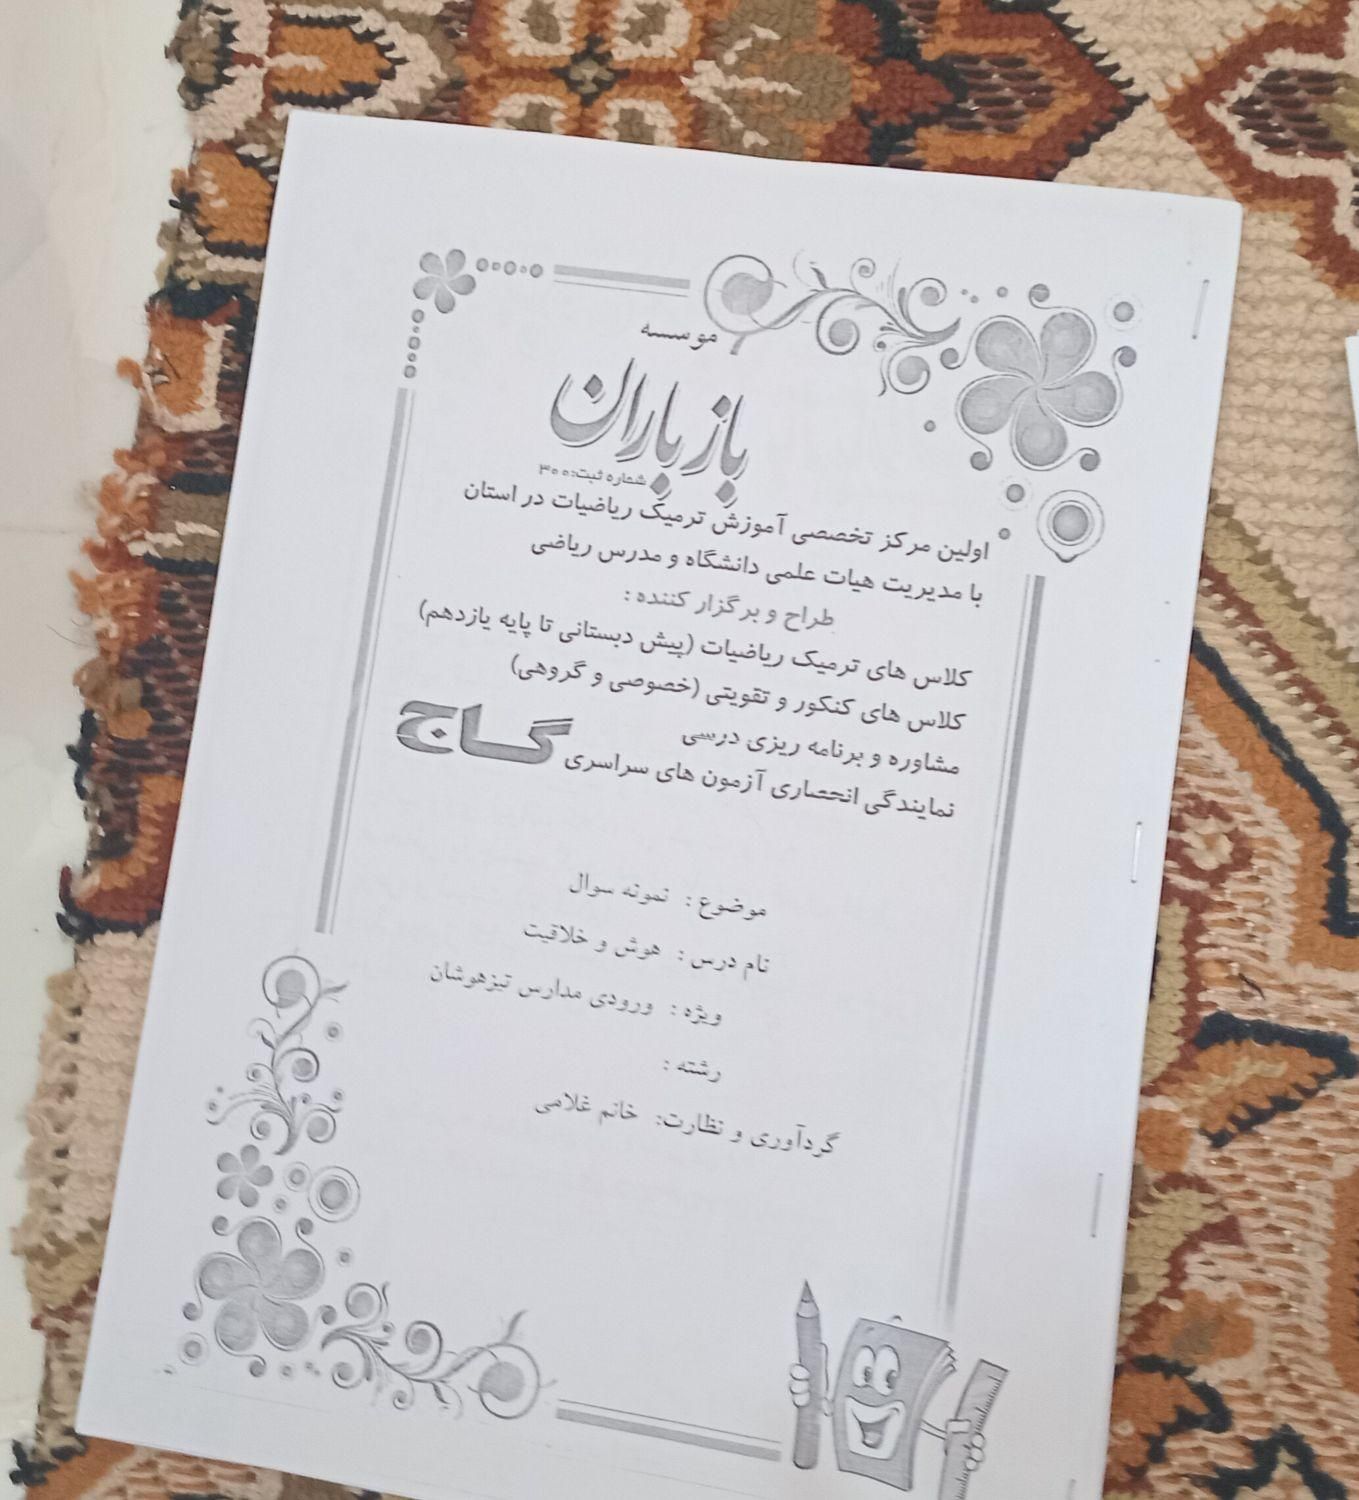 موسسه
باز باران
شماره ثبت: ۳۰۰
اولین مرکز تخصصی آموزش ترمیک ریاضیات در استان
با مدیریت هیات علمی دانشگاه و مدرس ریاضی
طراح و برگزار کننده :
کلاس های ترمیک ریاضیات (پیش دبستانی تا پایه یازدهم)
کلاس های کنکور و تقویتی (خصوصی و گروهی)
مشاوره و برنامه ریزی درسی
نمایندگی انحصاری آزمون های سراسری گاج
موضوع : نمونه سوال
نام درس : هوش و خلاقیت
ویژه : ورودی مدارس تیزهوشان
رشته :
گردآوری و نظارت: خانم غلامی